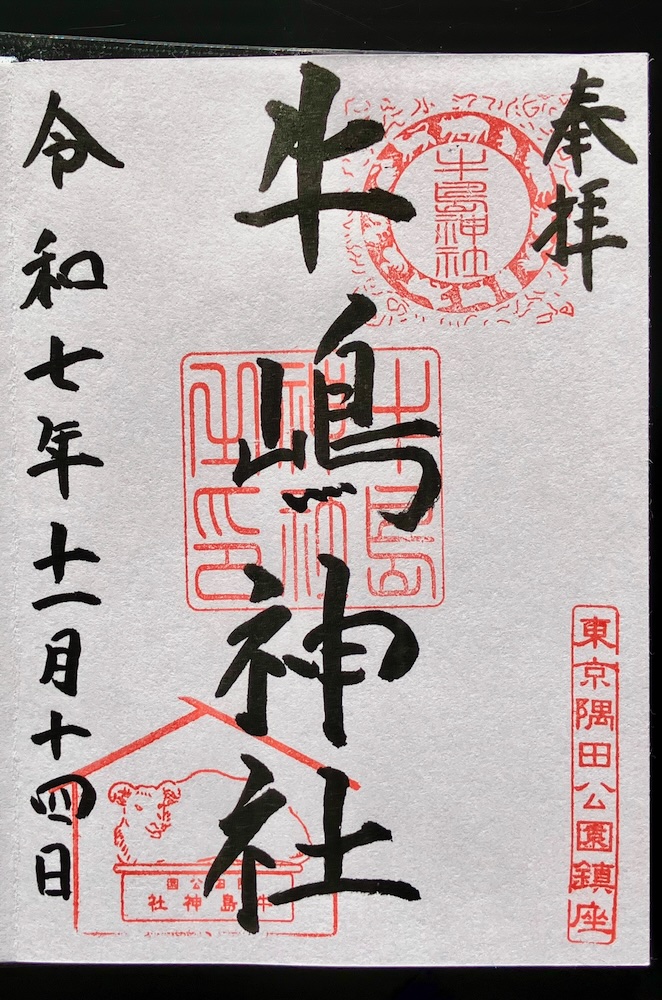 奉拝
牛島神社
牛嶋神社
牛島神社
東京隅田公園鎮座
牛島神社
令和七年十一月十四日